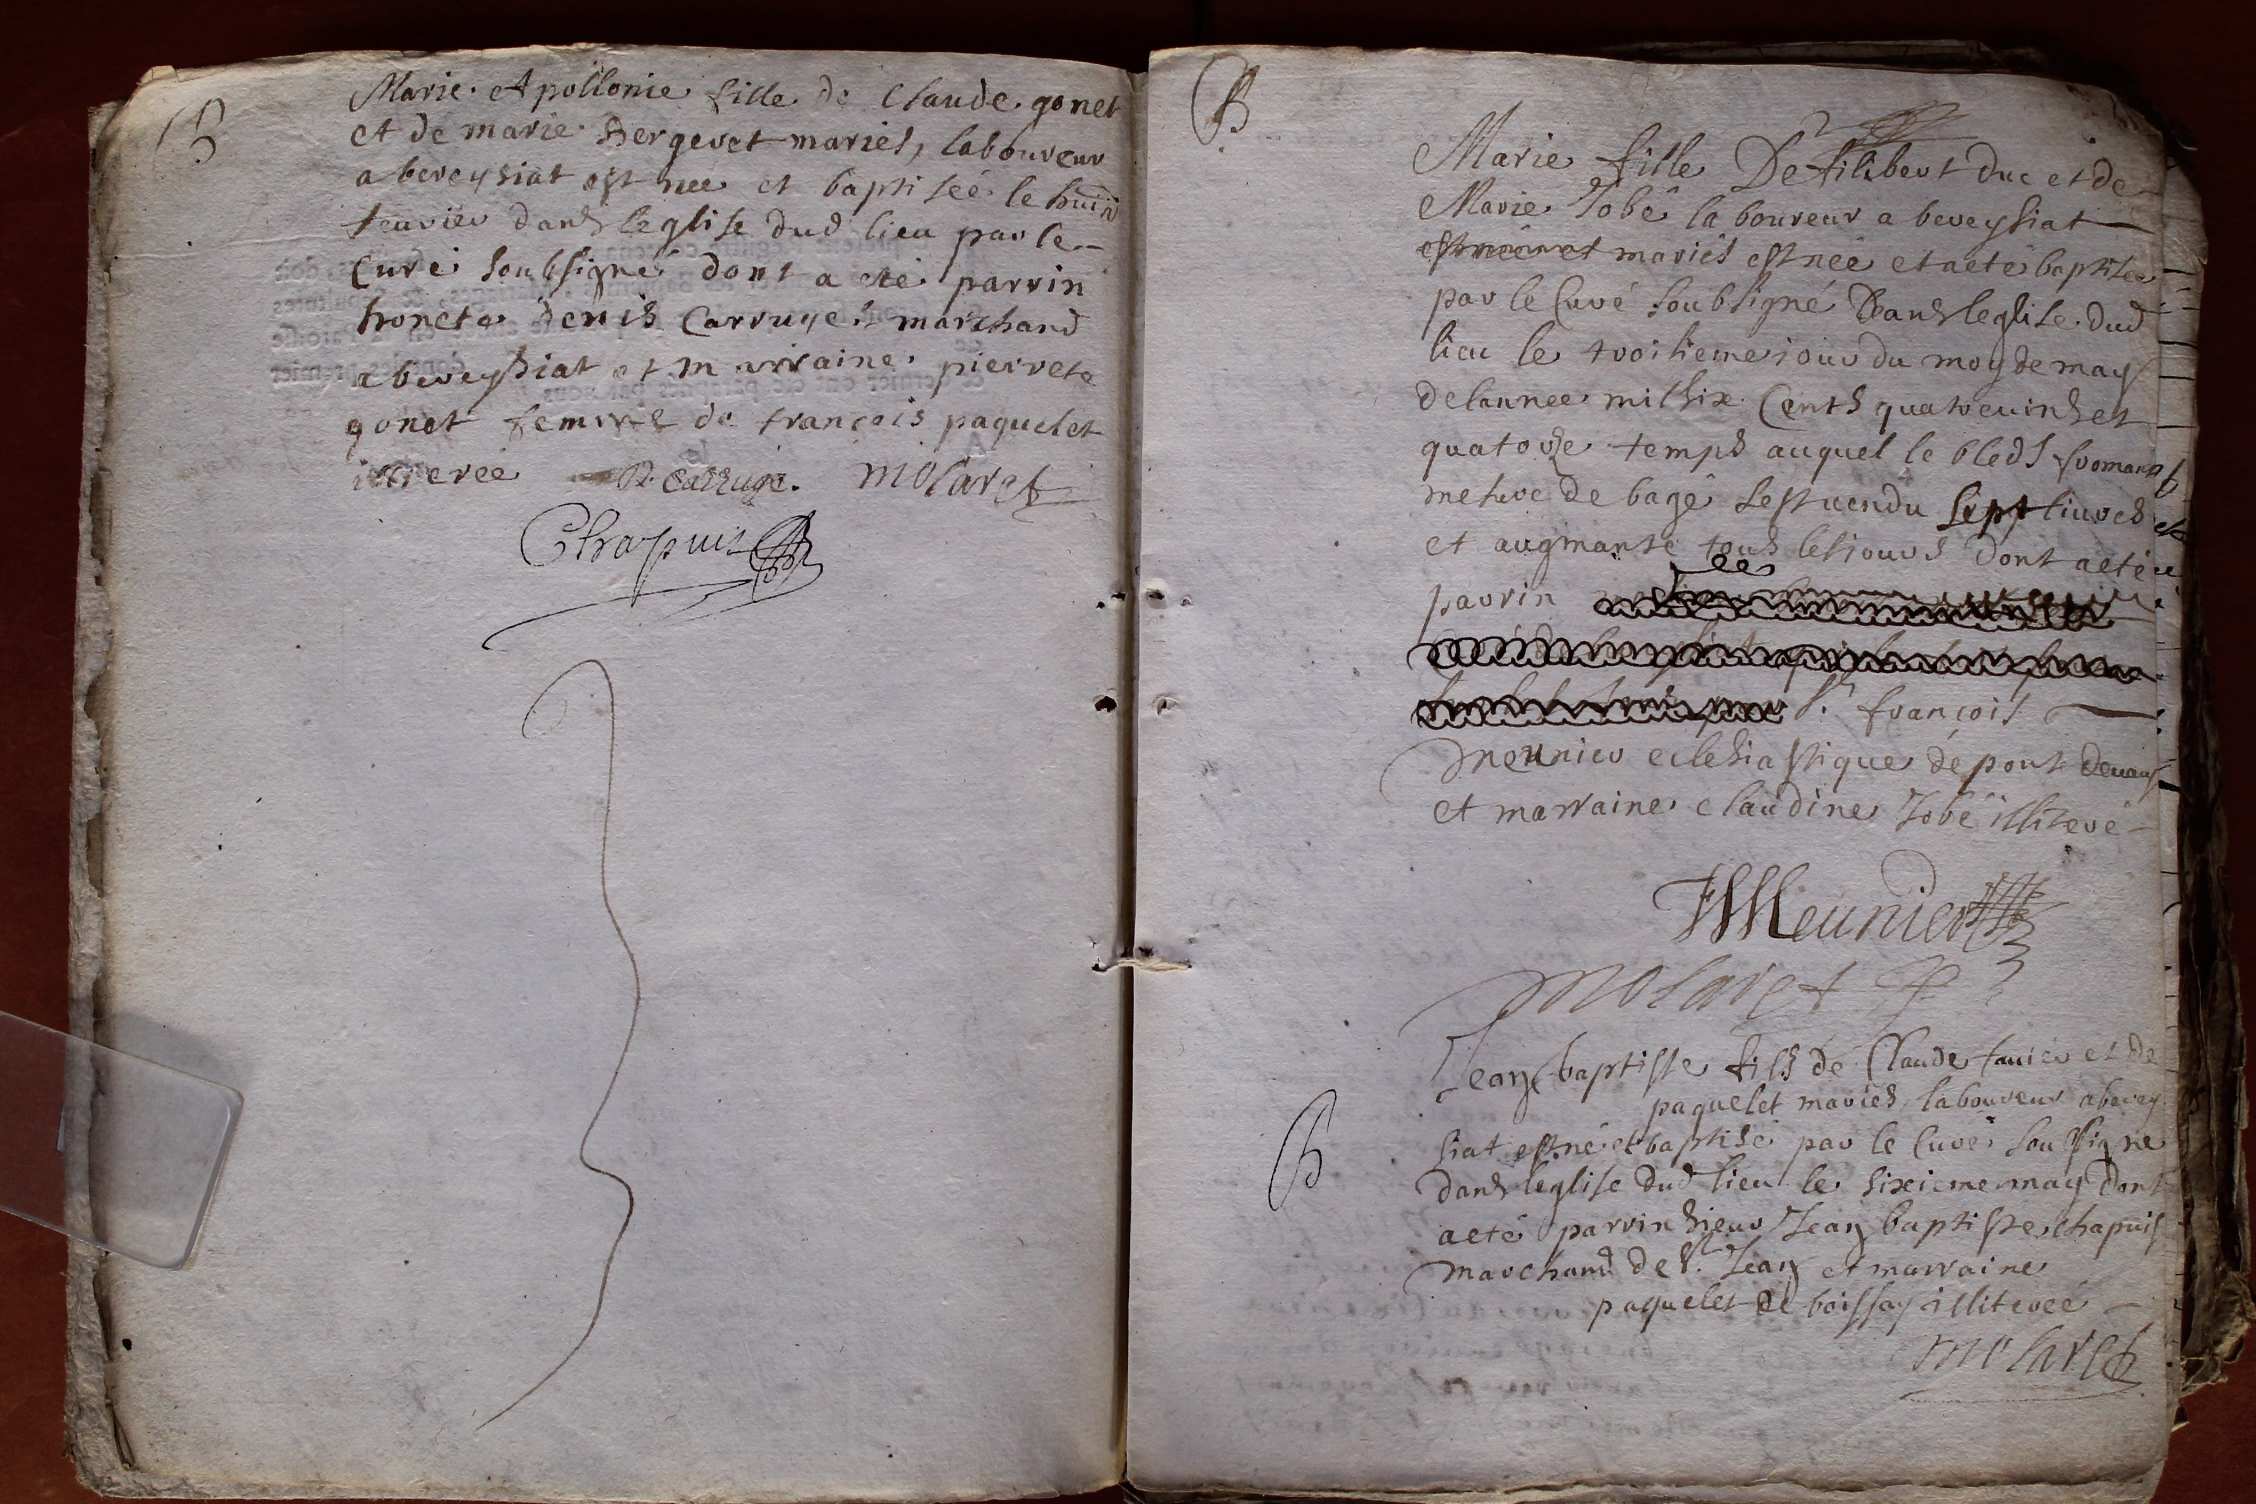 B
Marie Apollonie fille de Claude gonet
et de marie Bergeret mariés, laboureur
a beveysiat est nee et baptiseé le huit
feurier dans leglise dud lieu par le
Curé soubsigné dont a eté parrin
honete denis Carruge marchand
a beveysiat et marraine pierrete
gonet femme de francois paquelet
illiterée D. Carruge. Molaret
Chapuis
B
Marie fille De filibert duc et de
Marie Jobé laboureur a beveysiat
mariés est née et a eté baptisee
par le Curé soubsigné Dans leglise dud
lieu le troisieme iour du moy de may
de lannee mil six Cents quatreuinds et
quatorze temps auquel le bleds fromant
mesure de bagé sest uendu sept liures et
et augmante tous les iours dont a eté
parrin
sr. françois
meunier eclesiastique de pont deuaux
et marraine claudine Jobé illiteré
F Meunier
Molaret
B
Jean baptiste fils de Claude fauier et de
paquelet mariés laboureur a bevey
siat est né et baptisé par le Curé soussigne
dans leglise dud lieu le sixieme may dont
a eté parrin sieur Jean baptiste chapuis
marchand de st. Jean et marraine
paquelet de boissay illitereé
Molaret